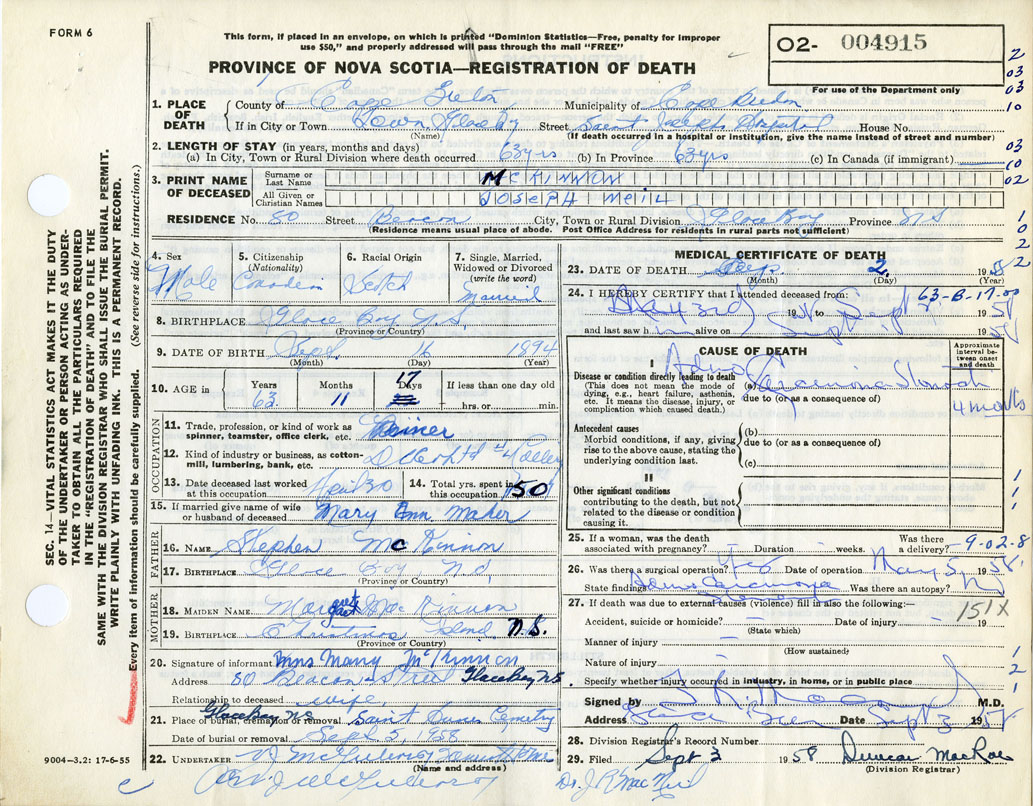 FORM 6
This form, if placed in an envelope, on which is printed "Dominion Statistics—Free, penalty for improper
use $50," and properly addressed will pass through the mail "FREE"
PROVINCE OF NOVA SCOTIA—REGISTRATION OF DEATH
O2- 004915
For use of the Department only
2
03
03
10
03
10
02
1
0
2
2
1. PLACE OF DEATH County of Cape Breton Municipality of Cape Breton
If in City or Town Town Glace Bay Street Saint Joseph's Hospital House No.
(Name) (If death occurred in a hospital or institution, give the name instead of street and number)
2. LENGTH OF STAY (in years, months and days)
(a) In City, Town or Rural Division where death occurred 63 yrs (b) In Province 63 yrs (c) In Canada (if immigrant)
3. PRINT NAME OF DECEASED Surname or Last Name McKINNON
All Given or Christian Names JOSEPH Neil
RESIDENCE No. 80 Street Beacon City, Town or Rural Division Glace Bay Province N S
(Residence means usual place of abode. Post Office Address for residents in rural parts not sufficient)
4. Sex Male
5. Citizenship (Nationality) Canadian
6. Racial Origin Scotch
7. Single, Married, Widowed or Divorced (write the word) Married
8. BIRTHPLACE Glace Bay N.S.
(Province or Country)
9. DATE OF BIRTH 16 1894
(Month) (Day) (Year)
10. AGE in Years 63 Months 11 Days 17 If less than one day old
hrs. or min.
OCCUPATION
11. Trade, profession, or kind of work as spinner, teamster, office clerk, etc. Miner
12. Kind of industry or business, as cotton-mill, lumbering, bank, etc.
13. Date deceased last worked at this occupation
14. Total yrs. spent in this occupation 50
15. If married give name of wife or husband of deceased Mary Ann Maher
FATHER
16. NAME Stephen McKinnon
17. BIRTHPLACE Glace Bay N.S.
(Province or Country)
MOTHER
18. MAIDEN NAME Margaret McKinnon
19. BIRTHPLACE Christmas Island N.S.
(Province or Country)
20. Signature of informant Mrs Mary McKinnon
Address 80 Beacon Street Glace Bay N.S.
Relationship to deceased wife
Glace Bay NS
21. Place of burial, cremation or removal Saint Cemetry
Date of burial or removal Sept 5, 1958
22. UNDERTAKER
(Name and address)
9004-3.2: 17-6-55
MEDICAL CERTIFICATE OF DEATH
23. DATE OF DEATH Sept 2 1958
(Month) (Day) (Year)
63-B-17-00
24. I HEREBY CERTIFY that I attended deceased from: May 3rd 1958 to Sept 1 1958
and last saw h alive on Sept 1 1958
CAUSE OF DEATH
Approximate interval between onset and death
I
Disease or condition directly leading to death (a) Adeno Carcinoma Stomach
(This does not mean the mode of dying, e.g., heart failure, asthenia, etc. It means the disease, injury, or complication which caused death.)
due to (or as a consequence of) 4 months
Antecedent causes
Morbid conditions, if any, giving rise to the above cause, stating the underlying condition last.
(b)
due to (or as a consequence of)
(c)
II
Other significant conditions
contributing to the death, but not related to the disease or condition causing it.
1
1
1
25. If a woman, was the death associated with pregnancy? Duration weeks. Was there a delivery?
9-02-8
26. Was there a surgical operation? Yes Date of operation May 5 1958
State findings Adeno Carcinoma Was there an autopsy?
27. If death was due to external causes (violence) fill in also the following:—
151X
Accident, suicide or homicide? Date of injury 19
(State which)
Manner of injury
(How sustained)
Nature of injury
Specify whether injury occurred in industry, in home, or in public place
1
2
1
Signed by M.D.
Address Date Sept 3 1958
28. Division Registrar's Record Number
29. Filed Sept 3 1958 Duncan MacRae
(Division Registrar)
Dr. J R MacNeil
SEC. 14—VITAL STATISTICS ACT MAKES IT THE DUTY
OF THE UNDERTAKER OR PERSON ACTING AS UNDER-
TAKER TO OBTAIN ALL THE PARTICULARS REQUIRED
IN THE "REGISTRATION OF DEATH" AND TO FILE THE
SAME WITH THE DIVISION REGISTRAR WHO SHALL ISSUE THE BURIAL PERMIT.
WRITE PLAINLY WITH UNFADING INK. THIS IS A PERMANENT RECORD.
Every item of information should be carefully supplied. (See reverse side for instructions.)